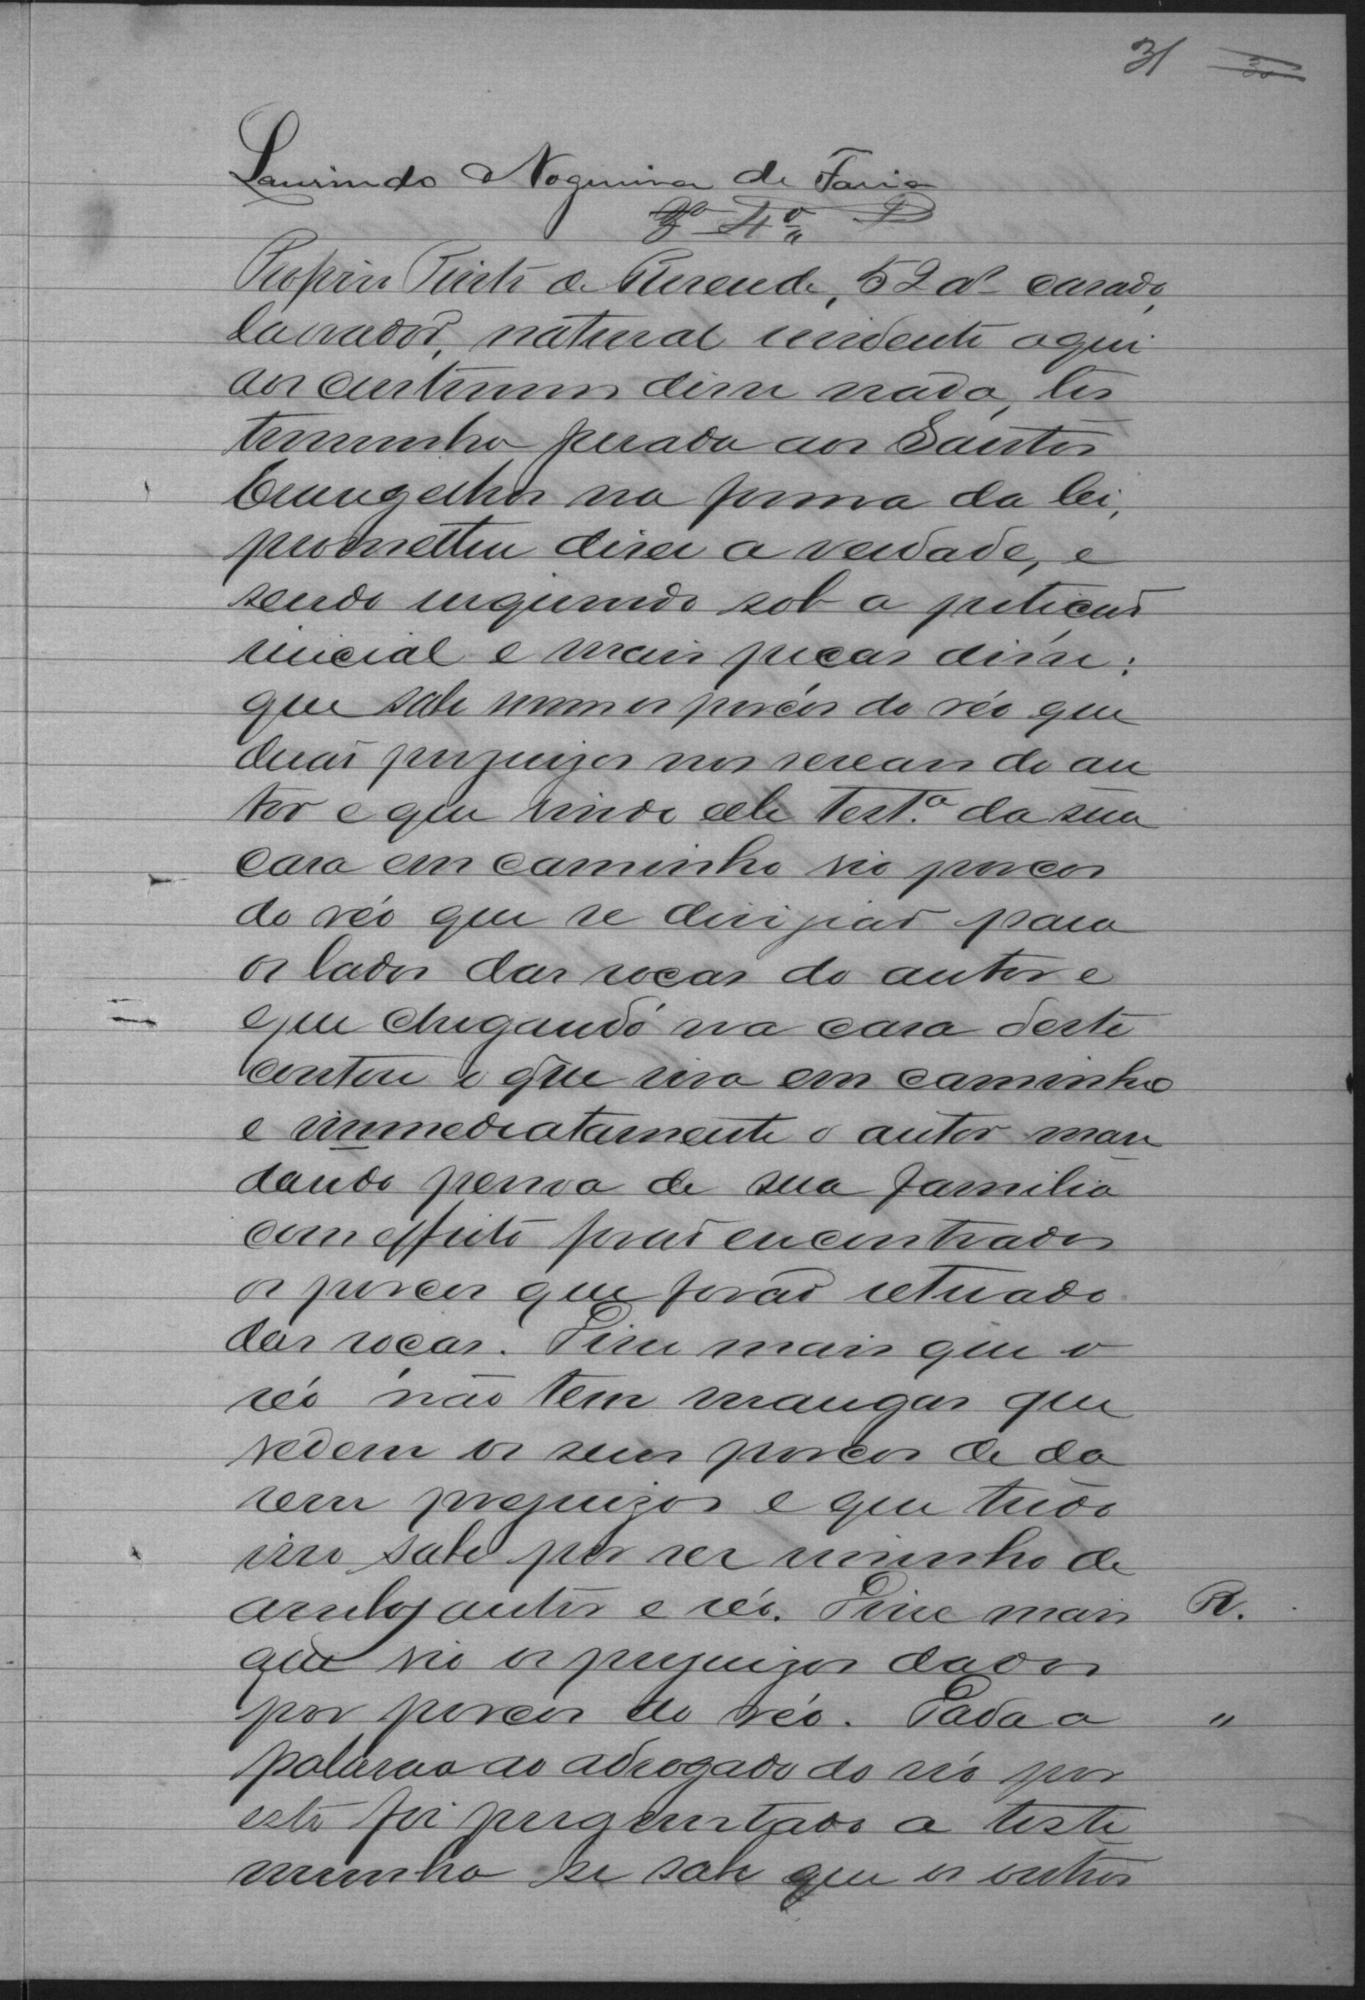 31 30
Laurindo Nogueira de Faria
4ª
Pinto de Resende, 52 aˢ casado,
lavrador, natural residente aqui
aos custumes disse nada, tes
temunha jurada aos Santos
Evangelhos na forma da lei,
prometteu diser a verdade, e
sendo inquirido sob a petição
inicial e mais peças disse:
que sabe serem os porcos do réo que
derão prejuizos nos cereaes do au
tor e que vindo elle Testª da sua
casa em caminho vio porcos
do réo que se dirijião para
os lados das roças do autor e
que chegando na casa deste
contou o que vira em caminho
e immediatamente o autor man
dando pessoa de sua familia
com effeito forão encontrados
os porcos que forão retirado
das roças. Disse mais que o
réo não tem mangas que
vedem os seus porcos de da
rem prejuizos e que tudo
isso sabe por ser visinho de
ambos autor e réo. Disse mais R.
que vio os prejuizos dados
por porcos do réo. Dada a "
palavra ao advogado do réo por
este foi perguntado a teste
munha se sabe que os outros